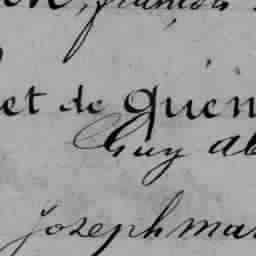 françois
et de Quen
Guy al
joseph mar